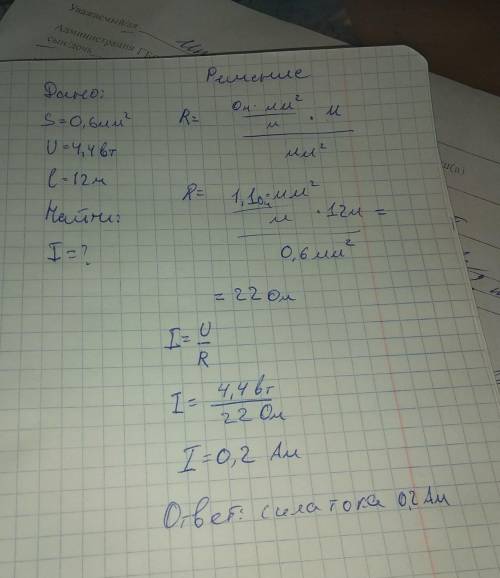 Уважаемый
Администрация ГБ
сын/дочь
Решение
Дано:
S=0,6мм²
U=4,4вт
l=12м
Найти:
I=?
R= Ом·мм²/м · м / мм²
R= 1,1ом·мм²/м · 12м / 0,6мм² =
= 22 Ом
I= U/R
I= 4,4вт/22 Ом
I=0,2 Ам
Ответ: сила тока 0,2 Ам